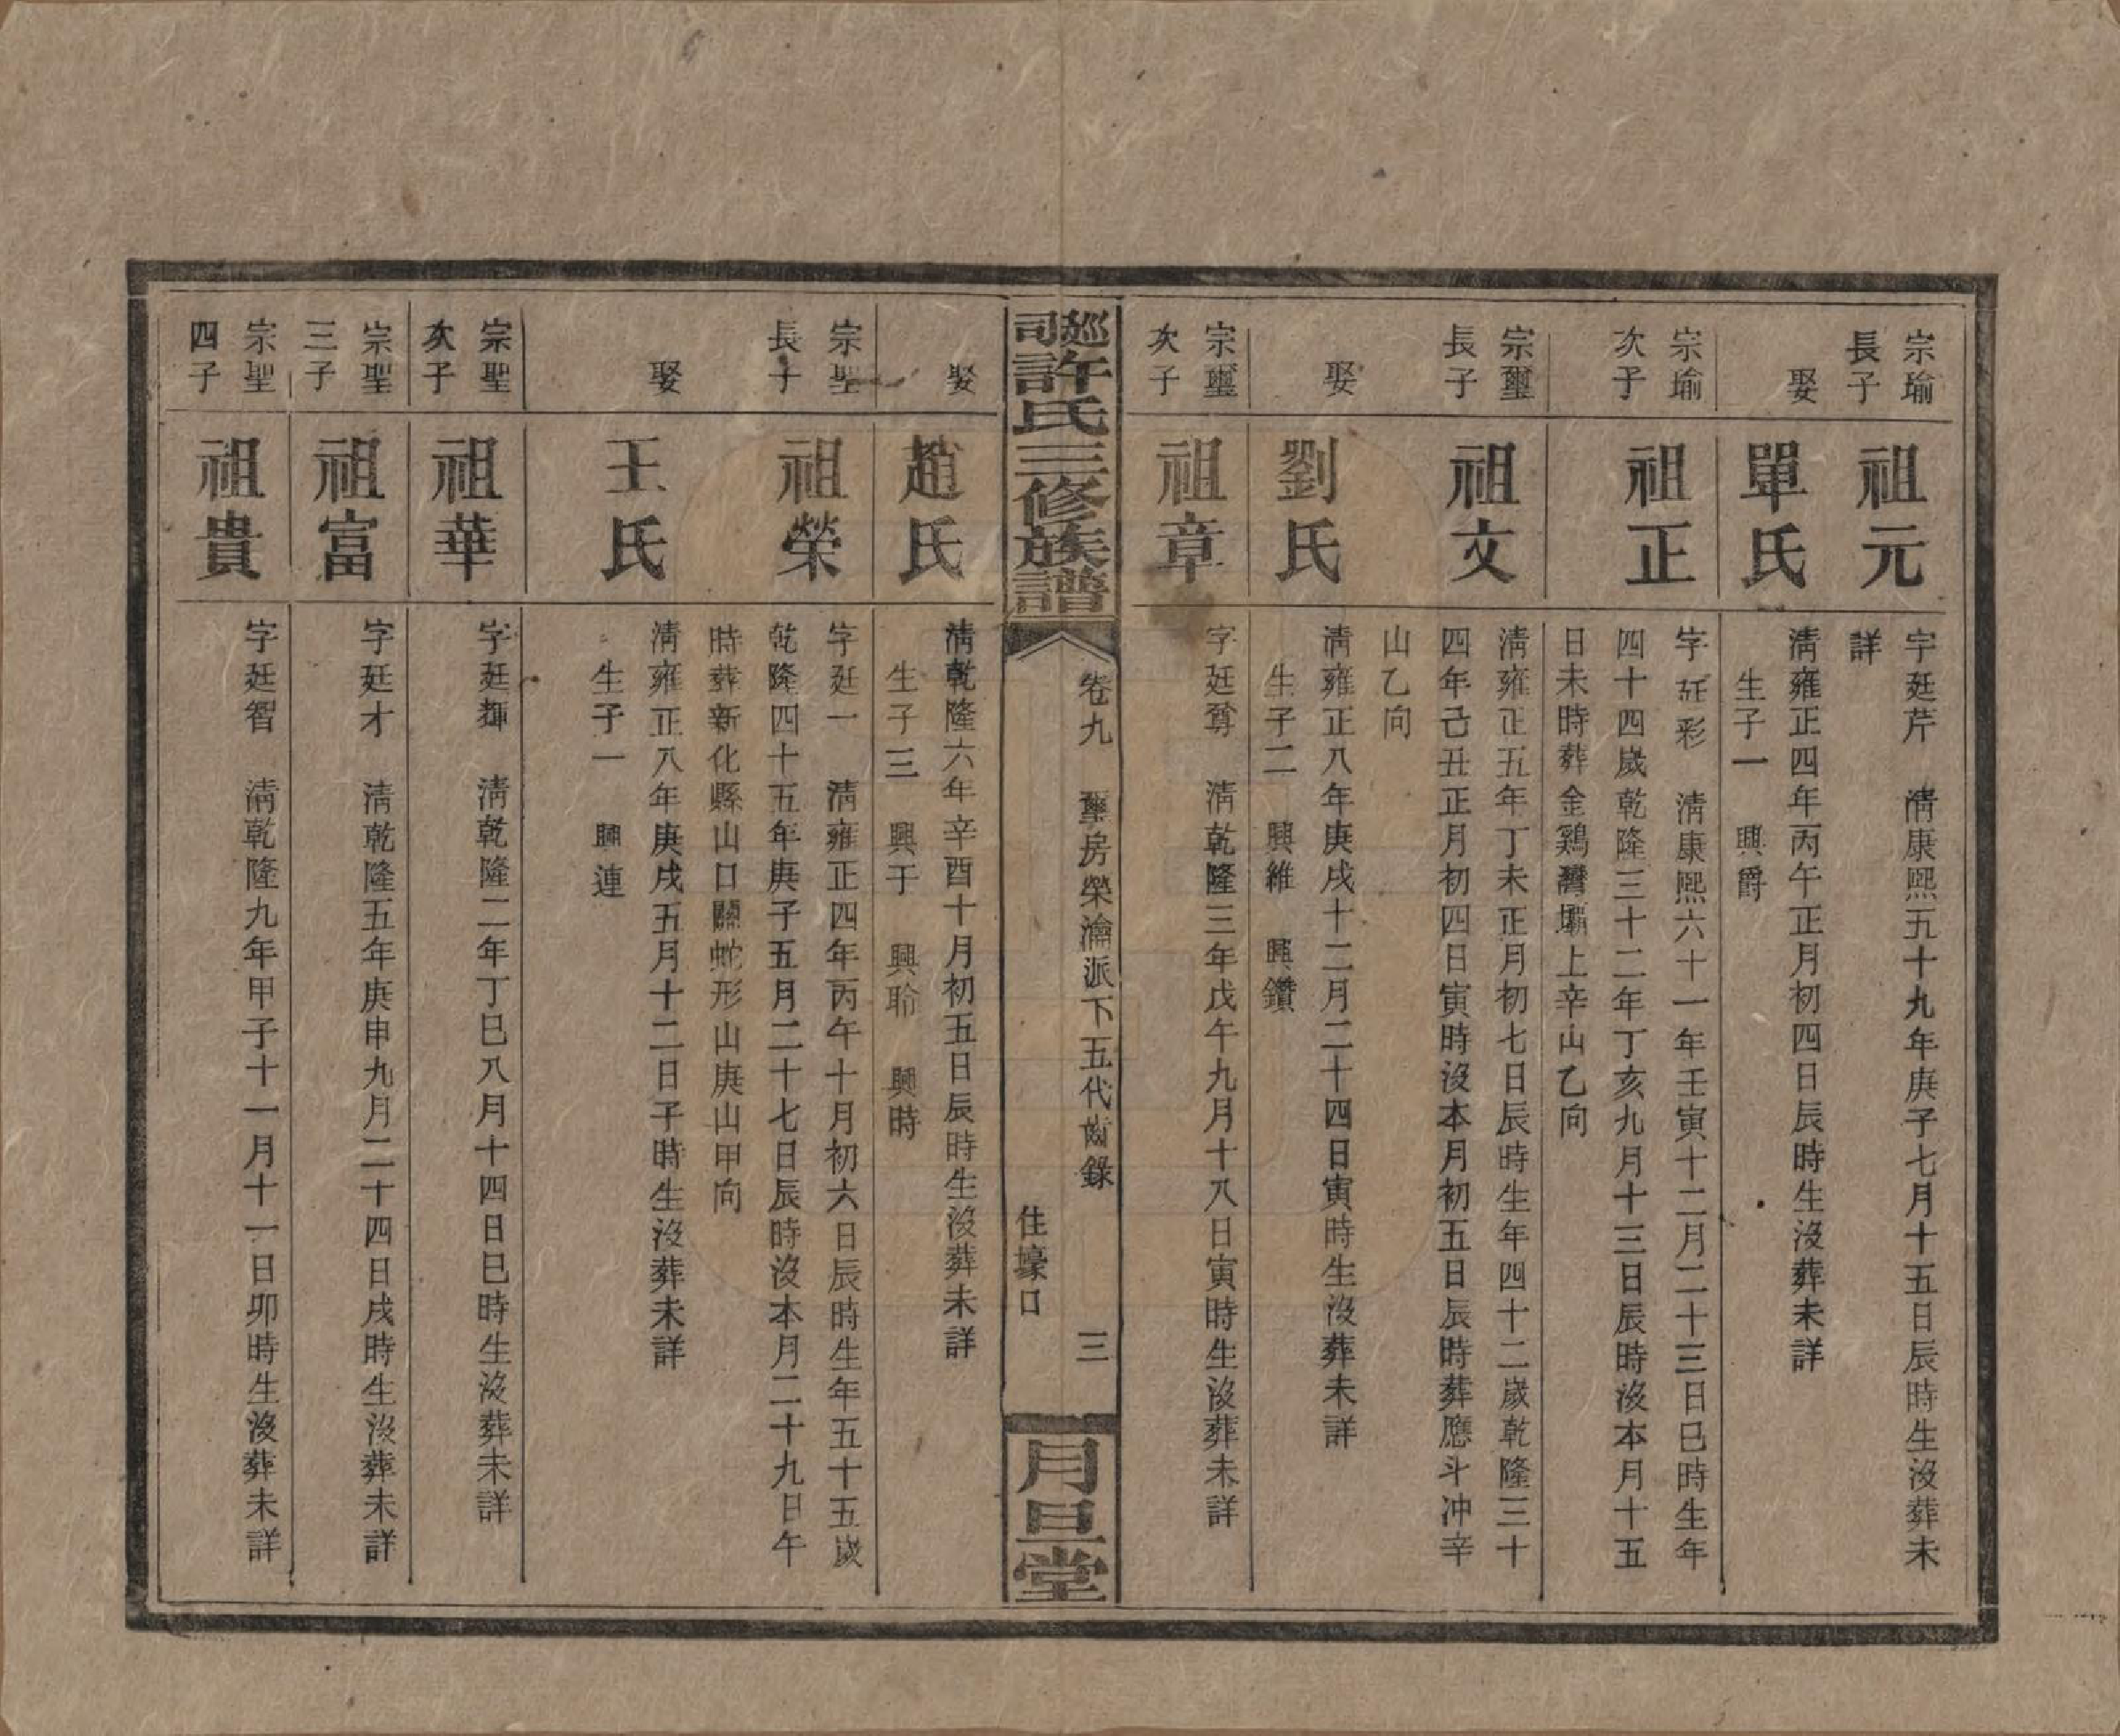 宗瑜
長子
祖元
字廷芹　淸康熙五十九年庚子七月十五日辰時生沒葬未
詳
娶
單氏
淸雍正四年丙午正月初四日辰時生沒葬未詳
生子一　興爵
宗瑜
次子
祖正
字廷彩　淸康熙六十一年壬寅十二月二十三日巳時生年
四十四歲乾隆三十二年丁亥九月十三日辰時沒本月十五
日未時葬金鷄灣壩上辛山乙向
宗璽
長子
祖文
淸雍正五年丁未正月初七日辰時生年四十二歲乾隆三十
四年己丑正月初四日寅時沒本月初五日辰時葬應斗冲辛
山乙向
娶
劉氏
淸雍正八年庚戌十二月二十四日寅時生沒葬未詳
生子二　興維　興鑽
宗璽
次子
祖章
字廷尊　淸乾隆三年戊午九月十八日寅時生沒葬未詳
巡司許氏三修族譜
卷九　璽房榮瀹派下五代齒錄　三
住壕口
月旦堂
娶
趙氏
淸乾隆六年辛酉十月初五日辰時生沒葬未詳
生子三　興于　興聆　興時
宗聖
長子
祖榮
字廷一　淸雍正四年丙午十月初六日辰時生年五十五歲
乾隆四十五年庚子五月二十七日辰時沒本月二十九日午
時葬新化縣山口關蛇形山庚山甲向
娶
王氏
淸雍正八年庚戌五月十二日子時生沒葬未詳
生子一　興連
宗聖
次子
祖華
字廷揮　淸乾隆二年丁巳八月十四日巳時生沒葬未詳
宗聖
三子
祖富
字廷才　淸乾隆五年庚申九月二十四日戌時生沒葬未詳
宗聖
四子
祖貴
字廷智　淸乾隆九年甲子十一月十一日卯時生沒葬未詳